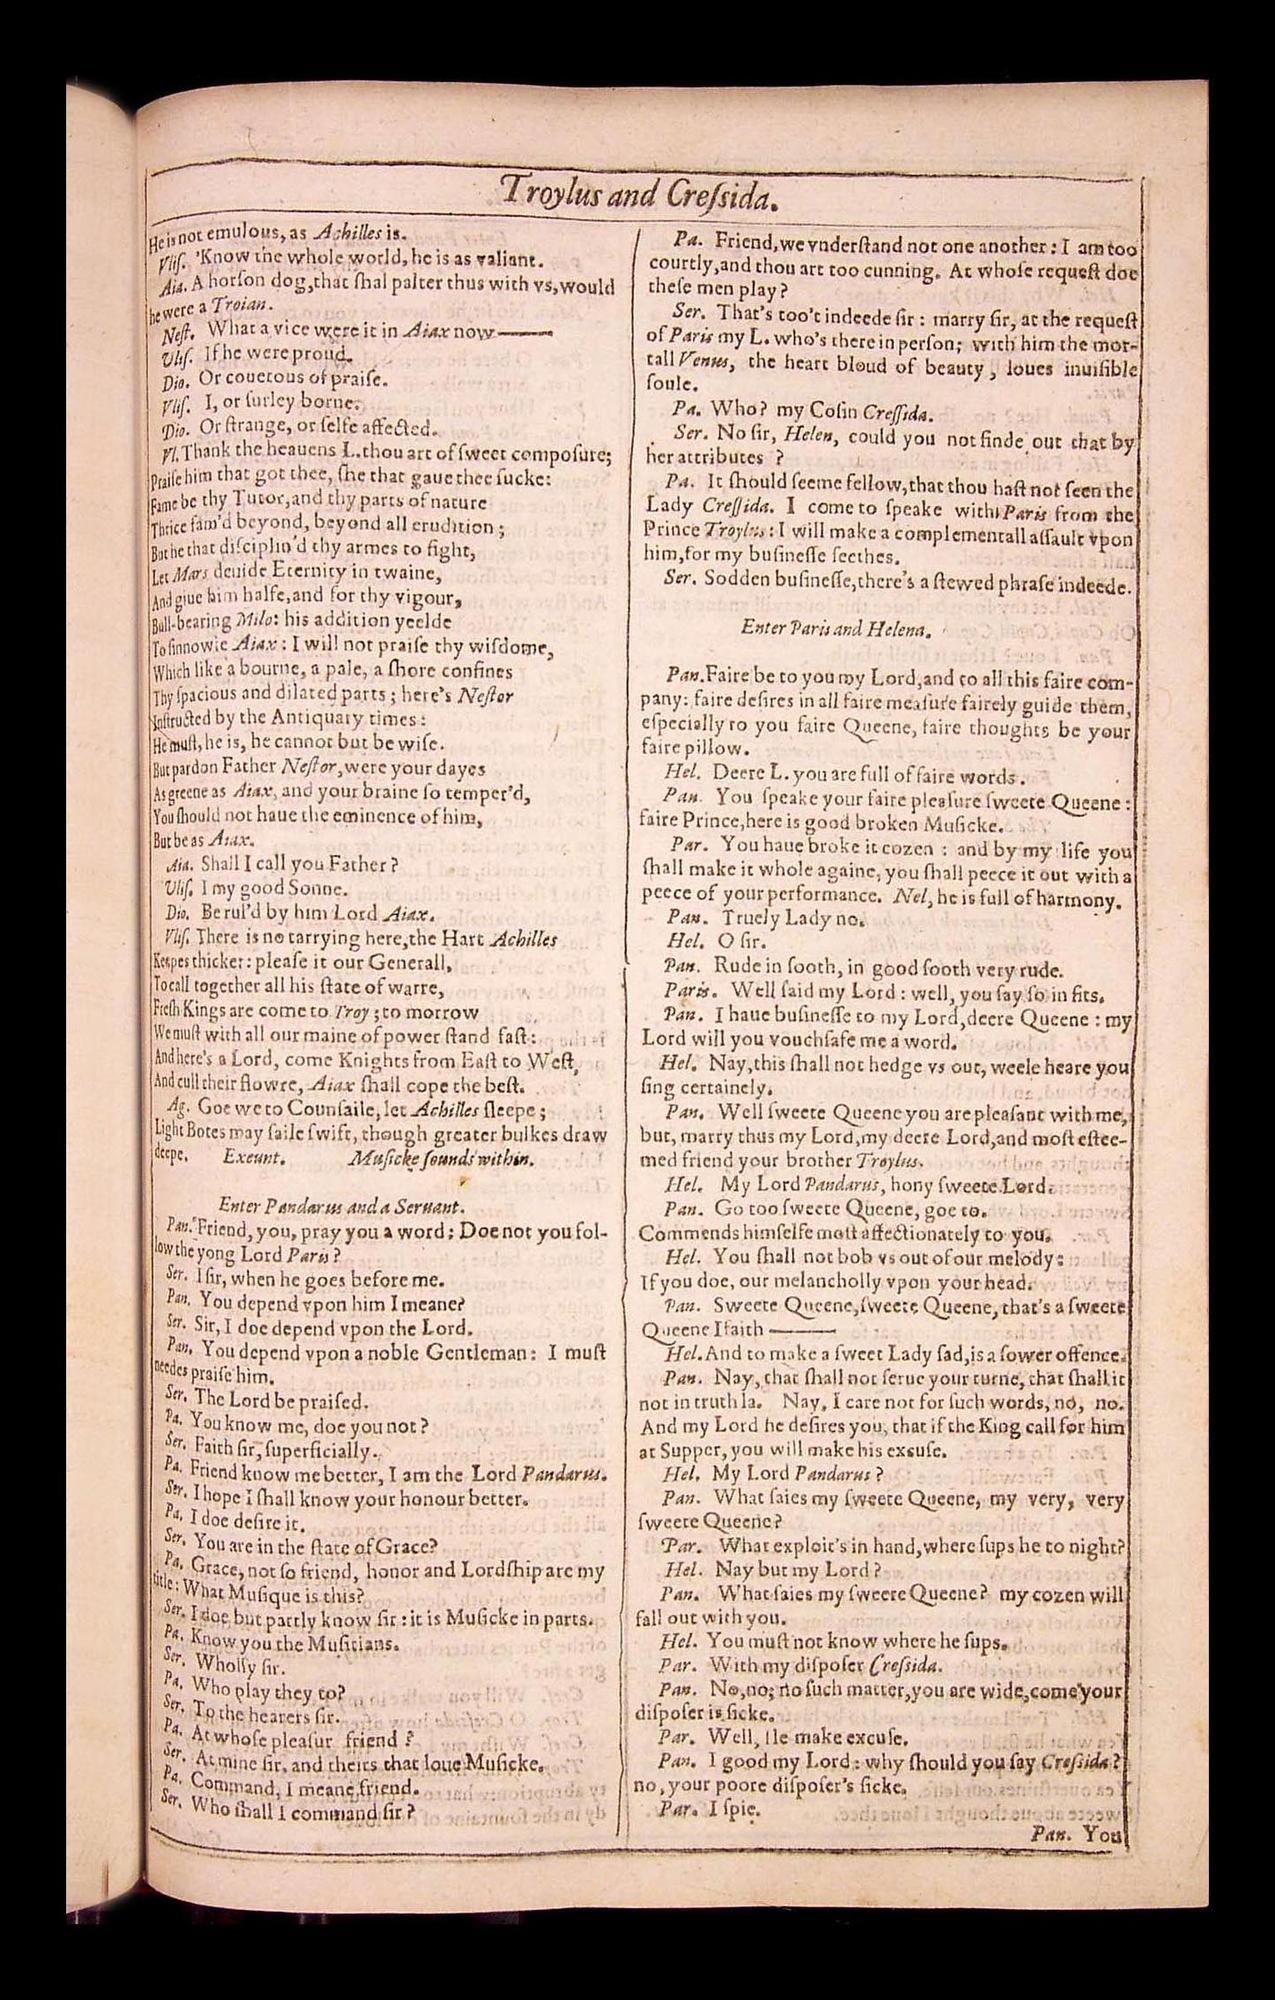 Troylus and Creſsida.
He is not emulous, as Achilles is.
Vliſ. 'Know the whole world, he is as valiant.
Aia. A horſon dog, that ſhal palter thus with vs, would
he were a Troian.
Neſt. What a vice were it in Aiax now———
Vliſ. If he were proud.
Dio. Or couetous of praiſe.
Vliſ. I, or ſurley borne.
Dio. Or ſtrange, or ſelfe affected.
Vl. Thank the heauens L. thou art of ſweet compoſure;
Praiſe him that got thee, ſhe that gaue thee ſucke:
Fame be thy Tutor, and thy parts of nature
Thrice fam'd beyond, beyond all erudition;
But he that diſciplin'd thy armes to fight,
Let Mars deuide Eternity in twaine,
And giue him halfe, and for thy vigour,
Bull-bearing Milo: his addition yeelde
To ſinnowie Aiax: I will not praiſe thy wiſdome,
Which like a bourne, a pale, a ſhore confines
Thy ſpacious and dilated parts; here's Neſtor
Inſtructed by the Antiquary times:
He muſt, he is, he cannot but be wiſe.
But pardon Father Neſtor, were your dayes
As greene as Aiax, and your braine ſo temper'd,
You ſhould not haue the eminence of him,
But be as Aiax.
Aia. Shall I call you Father?
Vliſ. I my good Sonne.
Dio. Be rul'd by him Lord Aiax.
Vliſ. There is no tarrying here, the Hart Achilles
Keepes thicker: pleaſe it our Generall,
To call together all his ſtate of warre,
Freſh Kings are come to Troy; to morrow
We muſt with all our maine of power ſtand faſt:
And here's a Lord, come Knights from Eaſt to Weſt,
And cull their flowre, Aiax ſhall cope the beſt.
Ag. Goe we to Counſaile, let Achilles ſleepe;
Light Botes may ſaile ſwift, though greater bulkes draw
deepe. Exeunt. Muſicke ſounds within.
Enter Pandarus and a Seruant.
Pan. Friend, you, pray you a word: Doe not you fol-
low the yong Lord Paris?
Ser. I ſir, when he goes before me.
Pan. You depend vpon him I meane?
Ser. Sir, I doe depend vpon the Lord.
Pan. You depend vpon a noble Gentleman: I muſt
needes praiſe him.
Ser. The Lord be praiſed.
Pa. You know me, doe you not?
Ser. Faith ſir, ſuperficially.
Pa. Friend know me better, I am the Lord Pandarus.
Ser. I hope I ſhall know your honour better.
Pa. I doe deſire it.
Ser. You are in the ſtate of Grace?
Pa. Grace, not ſo friend, honor and Lordſhip are my
title: What Muſique is this?
Ser. I doe but partly know ſir: it is Muſicke in parts.
Pa. Know you the Muſitians.
Ser. Wholly ſir.
Pa. Who play they to?
Ser. To the hearers ſir.
Pa. At whoſe pleaſur friend?
Ser. At mine ſir, and theirs that loue Muſicke.
Pa. Command, I meane friend.
Ser. Who ſhall I command ſir?
Pa. Friend, we vnderſtand not one another: I am too
courtly, and thou art too cunning. At whoſe requeſt doe
theſe men play?
Ser. That's too't indeede ſir: marry ſir, at the requeſt
of Paris my L. who's there in perſon; with him the mor-
tall Venus, the heart bloud of beauty, loues inuiſible
ſoule.
Pa. Who? my Coſin Creſſida.
Ser. No ſir, Helen, could you not finde out that by
her attributes?
Pa. It ſhould ſeeme fellow, that thou haſt not ſeen the
Lady Creſſida. I come to ſpeake with Paris from the
Prince Troylus: I will make a complementall aſſault vpon
him, for my buſineſſe ſeethes.
Ser. Sodden buſineſſe, there's a ſtewed phraſe indeede.
Enter Paris and Helena.
Pan. Faire be to you my Lord, and to all this faire com-
pany: faire deſires in all faire meaſure fairely guide them,
eſpecially to you faire Queene, faire thoughts be your
faire pillow.
Hel. Deere L. you are full of faire words.
Pan. You ſpeake your faire pleaſure ſweete Queene:
faire Prince, here is good broken Muſicke.
Par. You haue broke it cozen: and by my life you
ſhall make it whole againe, you ſhall peece it out with a
peece of your performance. Nel, he is full of harmony.
Pan. Truely Lady no.
Hel. O ſir.
Pan. Rude in ſooth, in good ſooth very rude.
Paris. Well ſaid my Lord: well, you ſay ſo in fits.
Pan. I haue buſineſſe to my Lord, deere Queene: my
Lord will you vouchſafe me a word.
Hel. Nay, this ſhall not hedge vs out, weele heare you
ſing certainely.
Pan. Well ſweete Queene you are pleaſant with me,
but, marry thus my Lord, my deere Lord, and moſt eſtee-
med friend your brother Troylus.
Hel. My Lord Pandarus, hony ſweete Lord.
Pan. Go too ſweete Queene, goe to.
Commends himſelfe moſt affectionately to you.
Hel. You ſhall not bob vs out of our melody:
If you doe, our melancholly vpon your head.
Pan. Sweete Queene, ſweete Queene, that's a ſweete
Queene Ifaith———
Hel. And to make a ſweet Lady ſad, is a ſower offence.
Pan. Nay, that ſhall not ſerue your turne, that ſhall it
not in truth la. Nay, I care not for ſuch words, no, no.
And my Lord he deſires you, that if the King call for him
at Supper, you will make his excuſe.
Hel. My Lord Pandarus?
Pan. What ſaies my ſweete Queene, my very, very
ſweete Queene?
Par. What exploit's in hand, where ſups he to night?
Hel. Nay but my Lord?
Pan. What ſaies my ſweete Queene? my cozen will
fall out with you.
Hel. You muſt not know where he ſups.
Par. With my diſpoſer Creſsida.
Pan. No, no; no ſuch matter, you are wide, come your
diſpoſer is ſicke.
Par. Well, Ile make excuſe.
Pan. I good my Lord: why ſhould you ſay Creſsida?
no, your poore diſpoſer's ſicke.
Par. I ſpie.
Pan. You